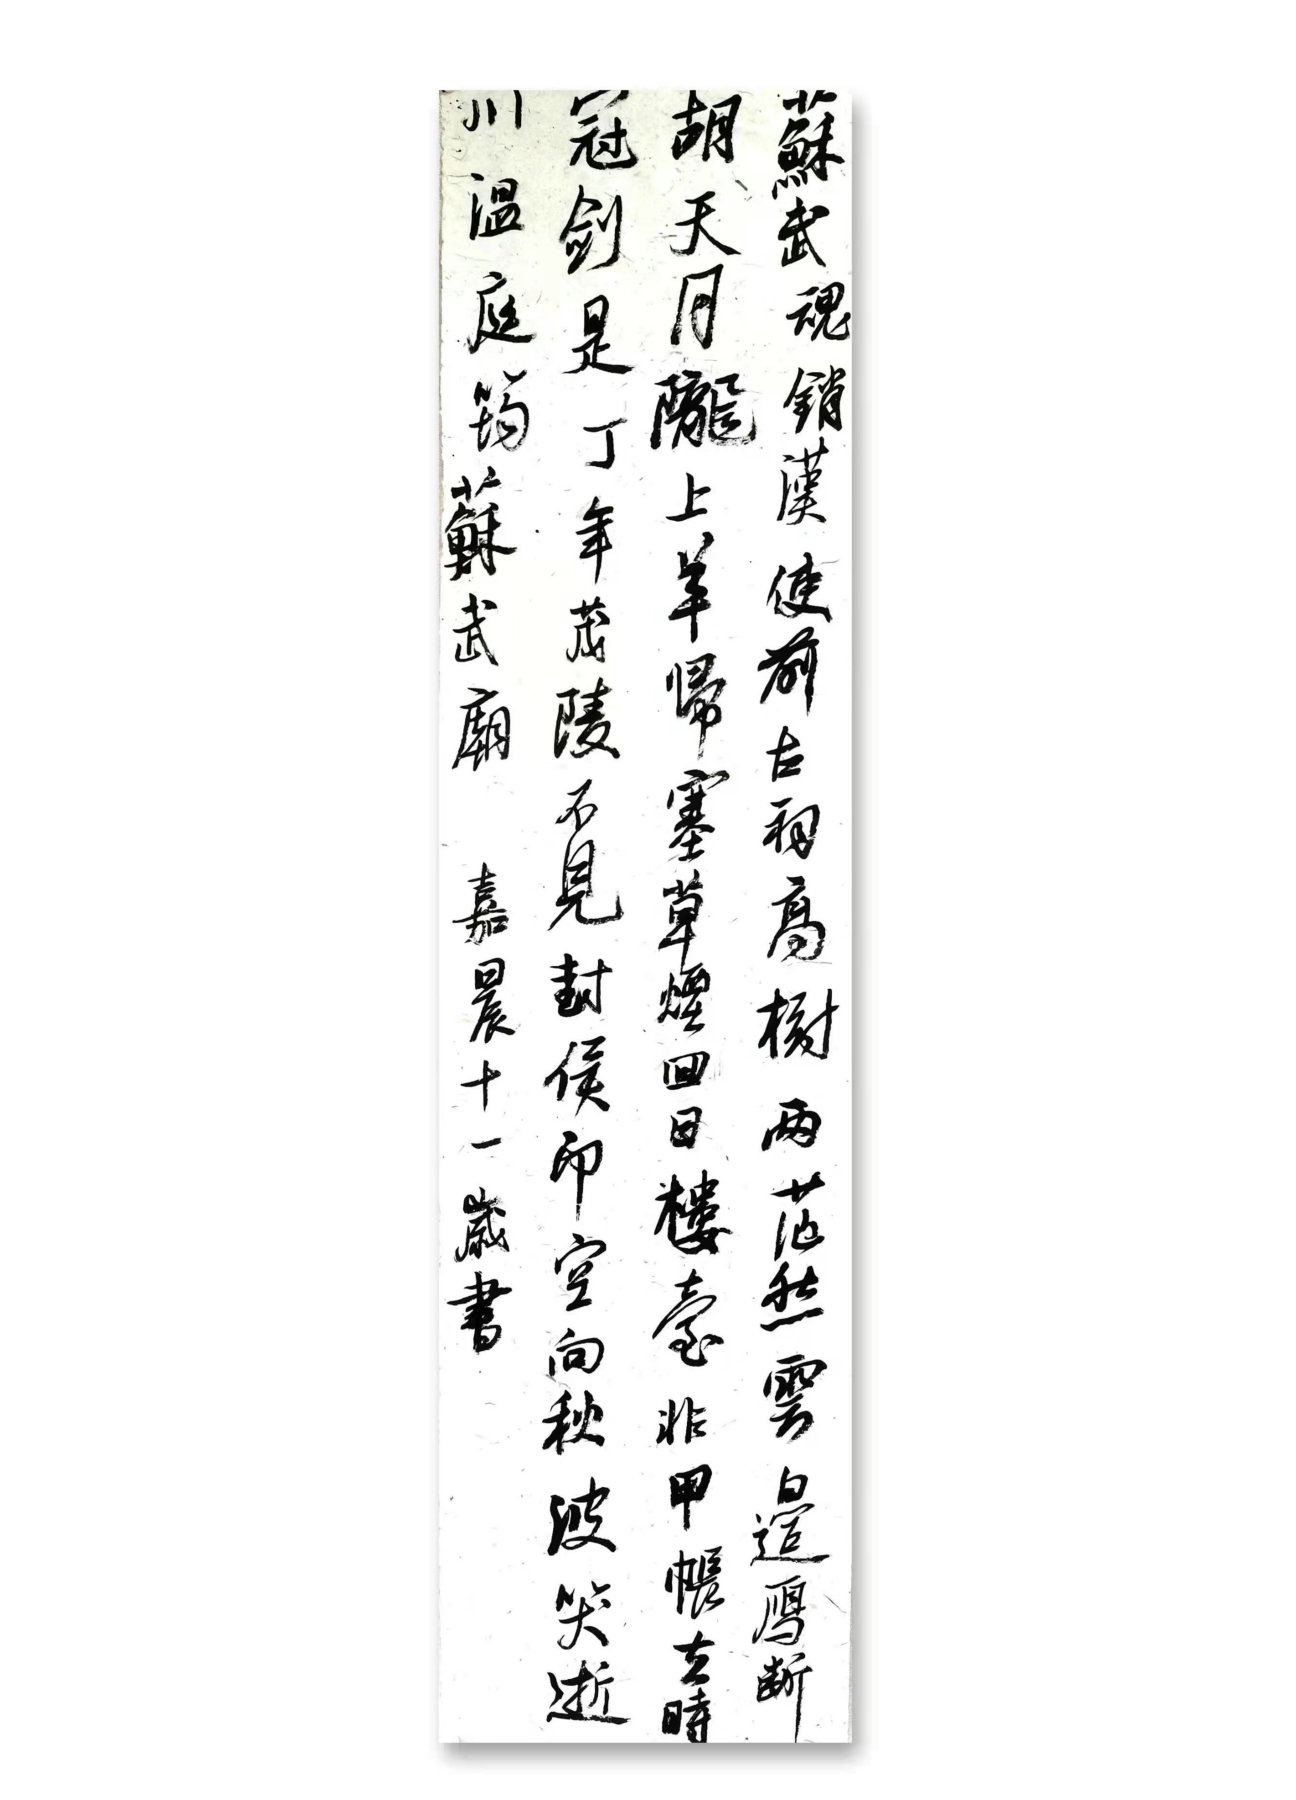 蘇武魂銷漢使前古祠高樹兩茫然雲邊鴈斷
胡天月隴上羊歸塞草煙回日樓臺非甲帳去時
冠劍是丁年茂陵不見封侯印空向秋波哭逝
川溫庭筠蘇武廟 嘉晨十一歲書